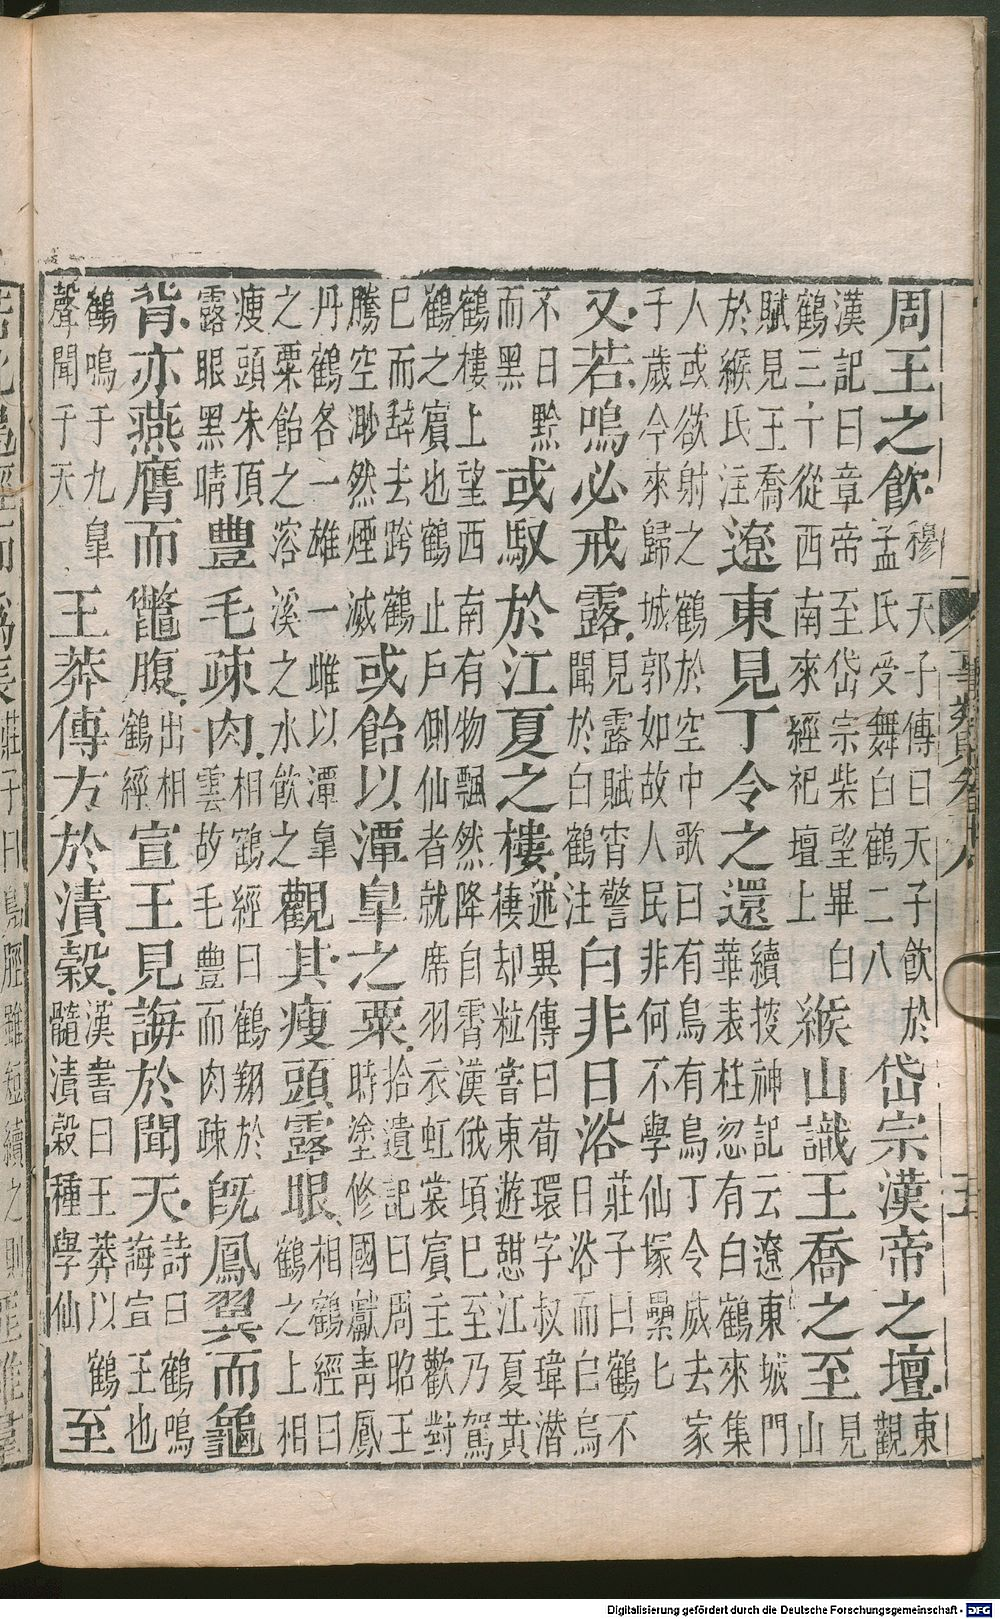 周王之飲穆天子傳曰天子飲於孟氏受舞白鶴二八岱宗漢帝之壇東觀
漢記曰章帝至岱宗柴望畢白鶴三十從西南來經祀壇上緱山識王喬之至見山
賦見王喬於緱氏注遼東見丁令之還續搜神記云遼東城門華表柱忽有白鶴來集
人或欲射之鶴於空中歌曰有鳥有鳥丁令威去家千歲今來歸城郭如故人民非何不學仙塚纍匕
又若鳴必戒露見露賦宵警聞於白鶴注白非日浴莊子曰鶴不日浴而白烏
不日黔而黑或馭於江夏之樓述異傳曰荀環字叔瑋潛棲却粒嘗東遊憇江夏黃
鶴樓上望西南有物飄然降自霄漢俄頃巳至乃駕鶴之賓也鶴止戶側仙者就席羽衣虹裳賓主歡對
巳而辭去跨鶴騰空渺然煙滅或飴以潭皐之粟拾遺記曰周昭王時塗修國獻青鳳
丹鶴各一雄一雌以潭皐之粟飴之溶溪之水飲之觀其瘦頭露眼相鶴經曰鶴之上相
瘦頭朱頂露眼黑睛豐毛疎肉相鶴經曰鶴翔於雲故毛豐而肉疎既鳳翼而龜
背亦燕膺而鼈腹出相鶴經宣王見誨於聞天詩曰鶴鳴誨宣王也
鶴鳴于九皐聲聞于天王莽傳方於漬穀漢書曰王莽以鶴髓漬穀種學仙至
莊子曰鳧脛雖短續之則
事類賦卷十八
五
Digitalisierung gefördert durch die Deutsche Forschungsgemeinschaft - DFG